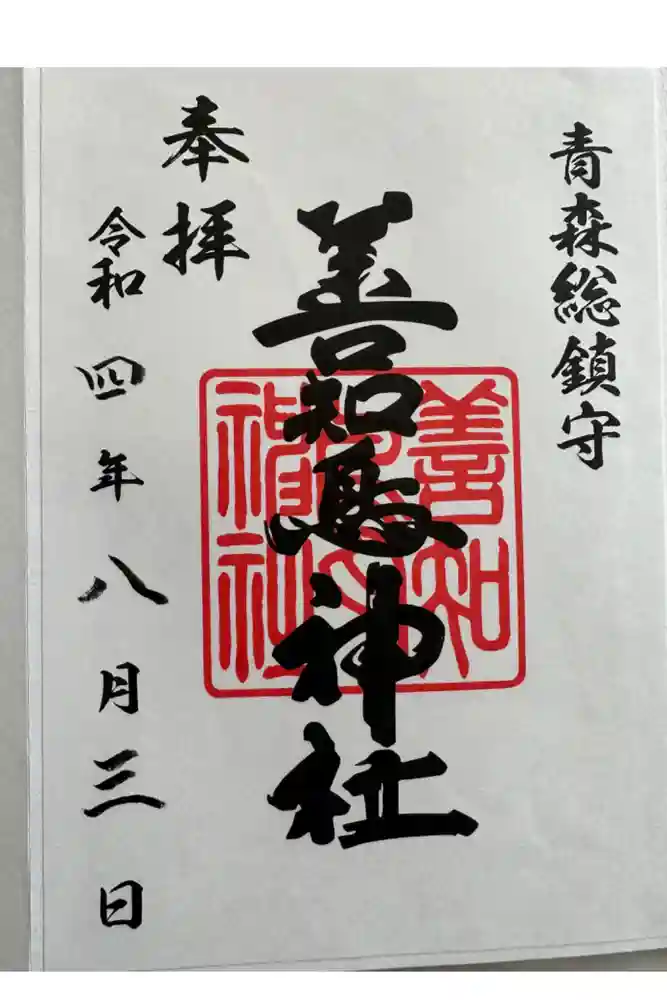 青森総鎮守
善知鳥神社
善知鳥
神社
奉拝
令和四年八月三日